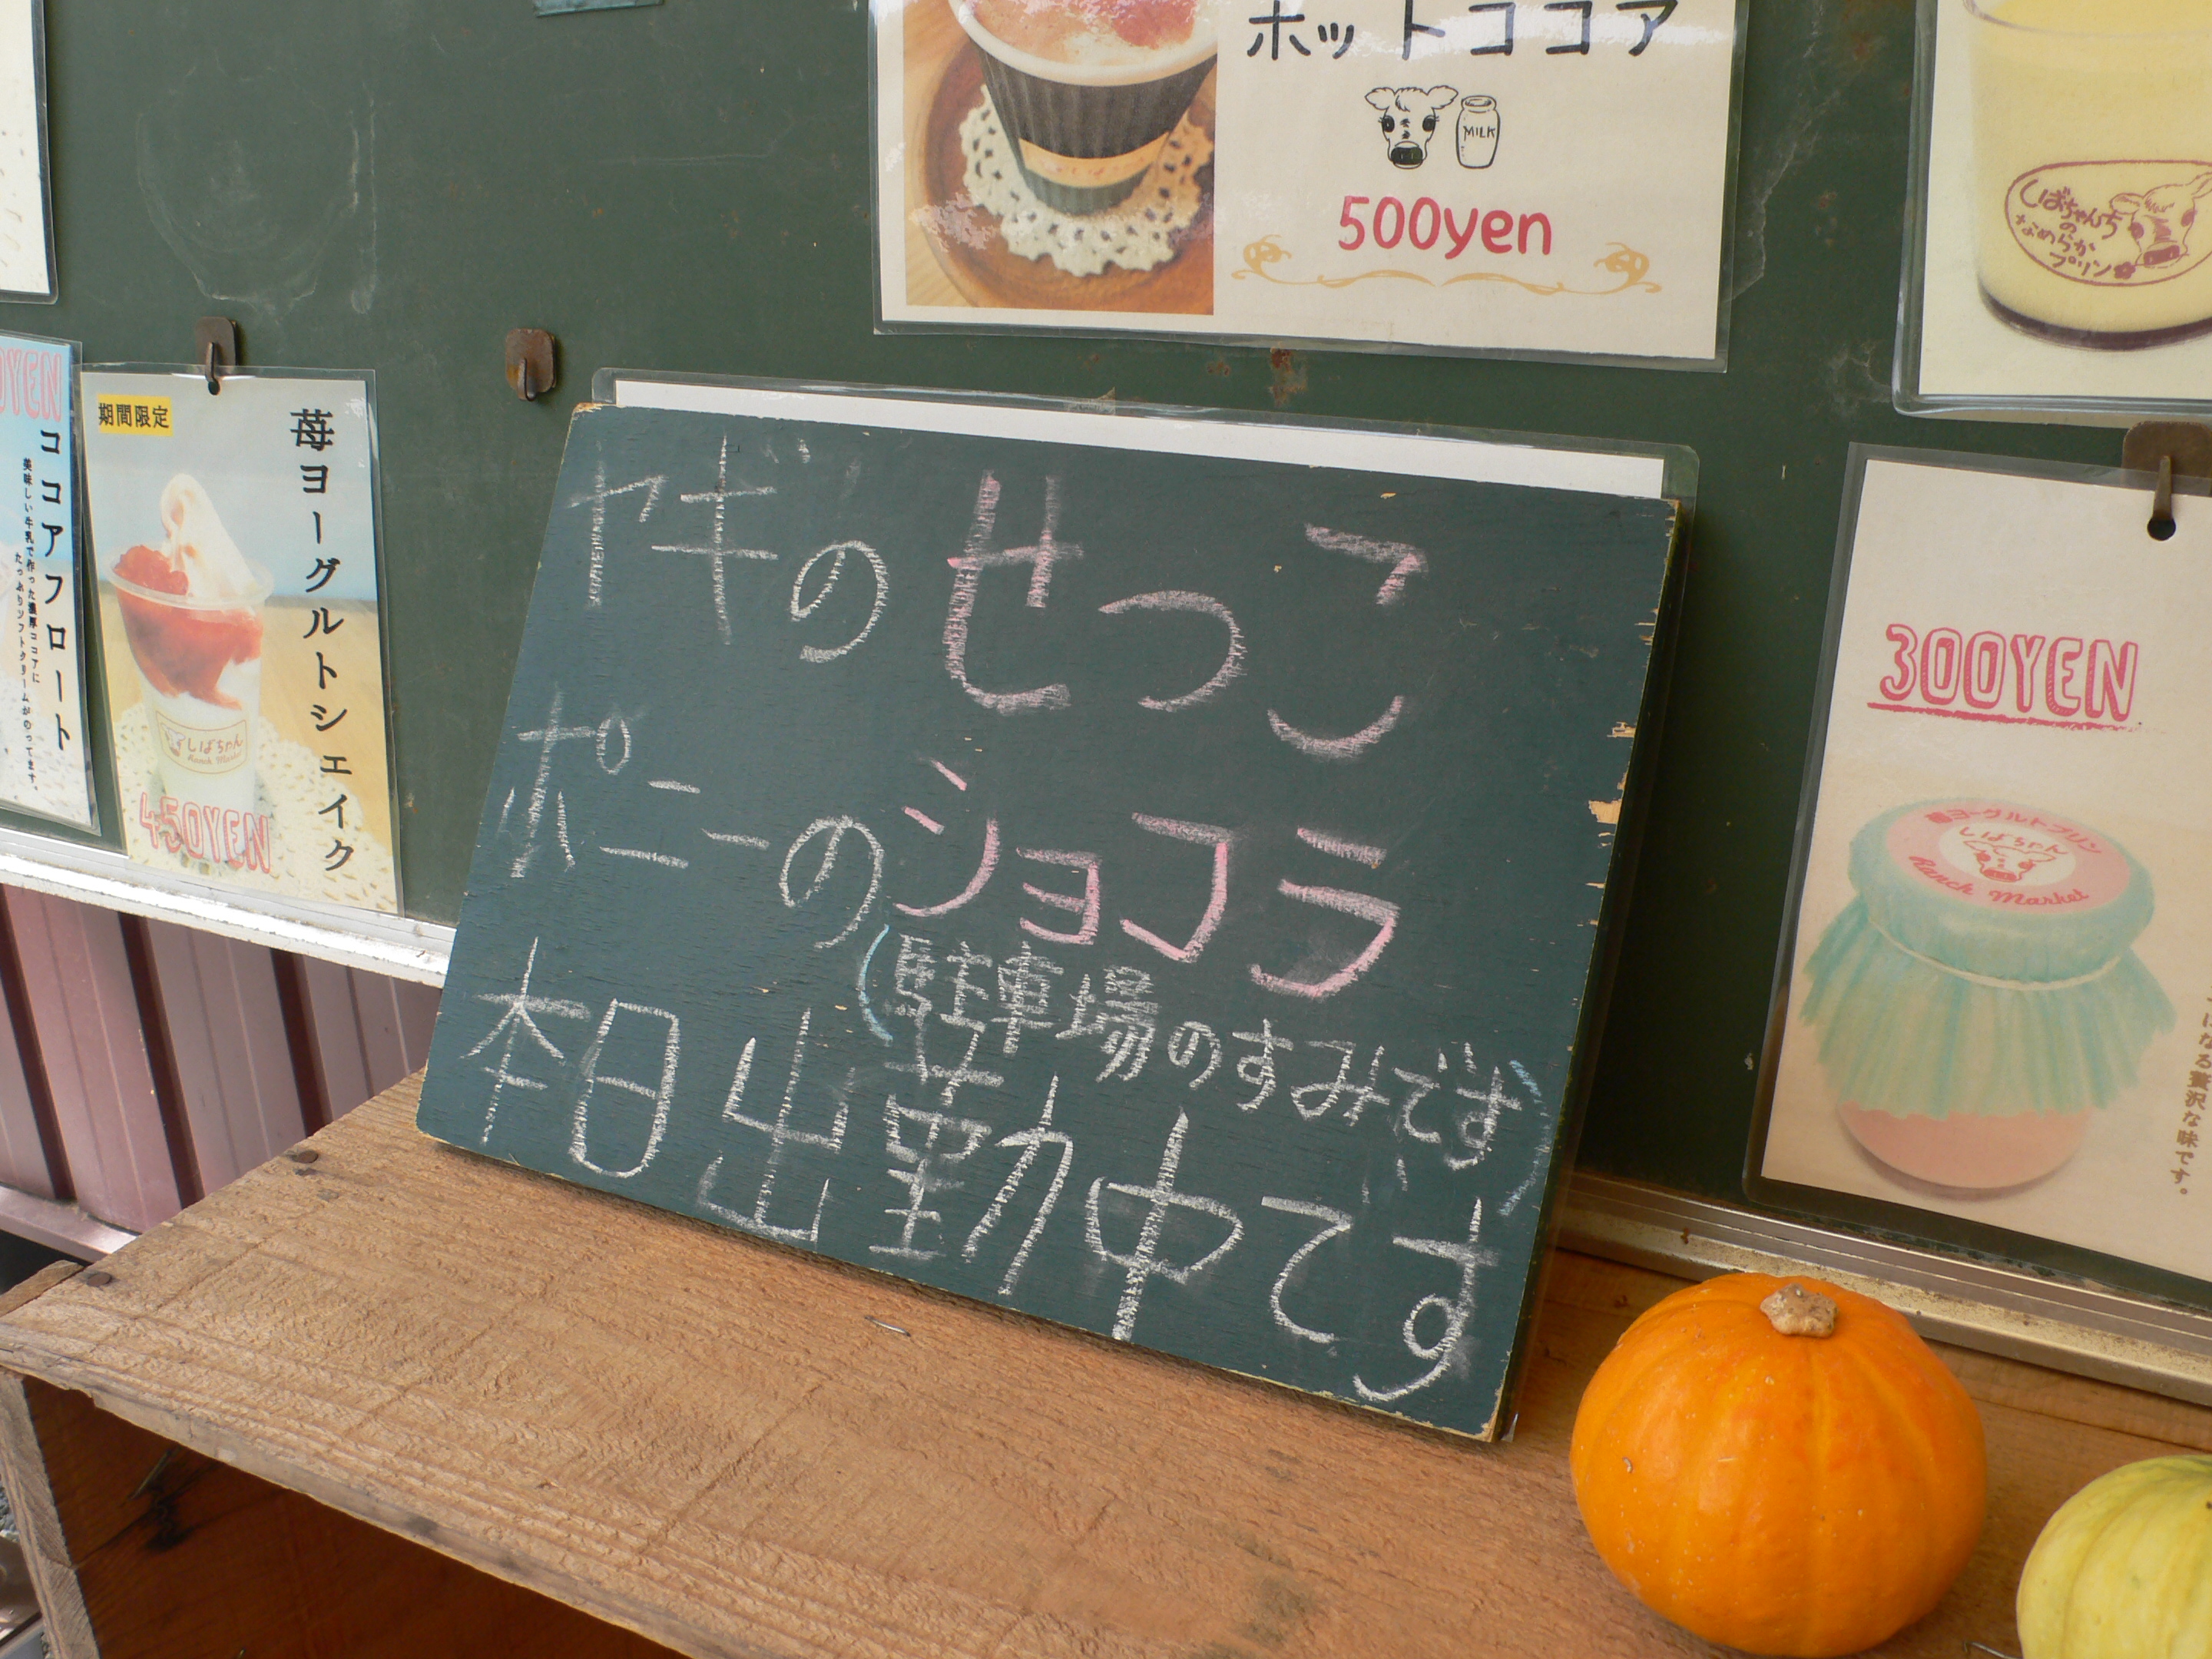 ホットココア
MILK
500yen
しばちゃんち
の
なめらか
プリン
YEN
ココアフロート
美味しい牛乳で作った濃厚ココアに
たっぷりソフトクリームがのってます。
期間限定
苺ヨーグルトシェイク
しばちゃん
Ranch Market
450YEN
ヤギのせつこ
ポニーのショコラ
(駐車場のすみです)
本日出勤中です
300YEN
苺ヨーグルトプリン
しばちゃん
Ranch Market
になる贅沢な味です。